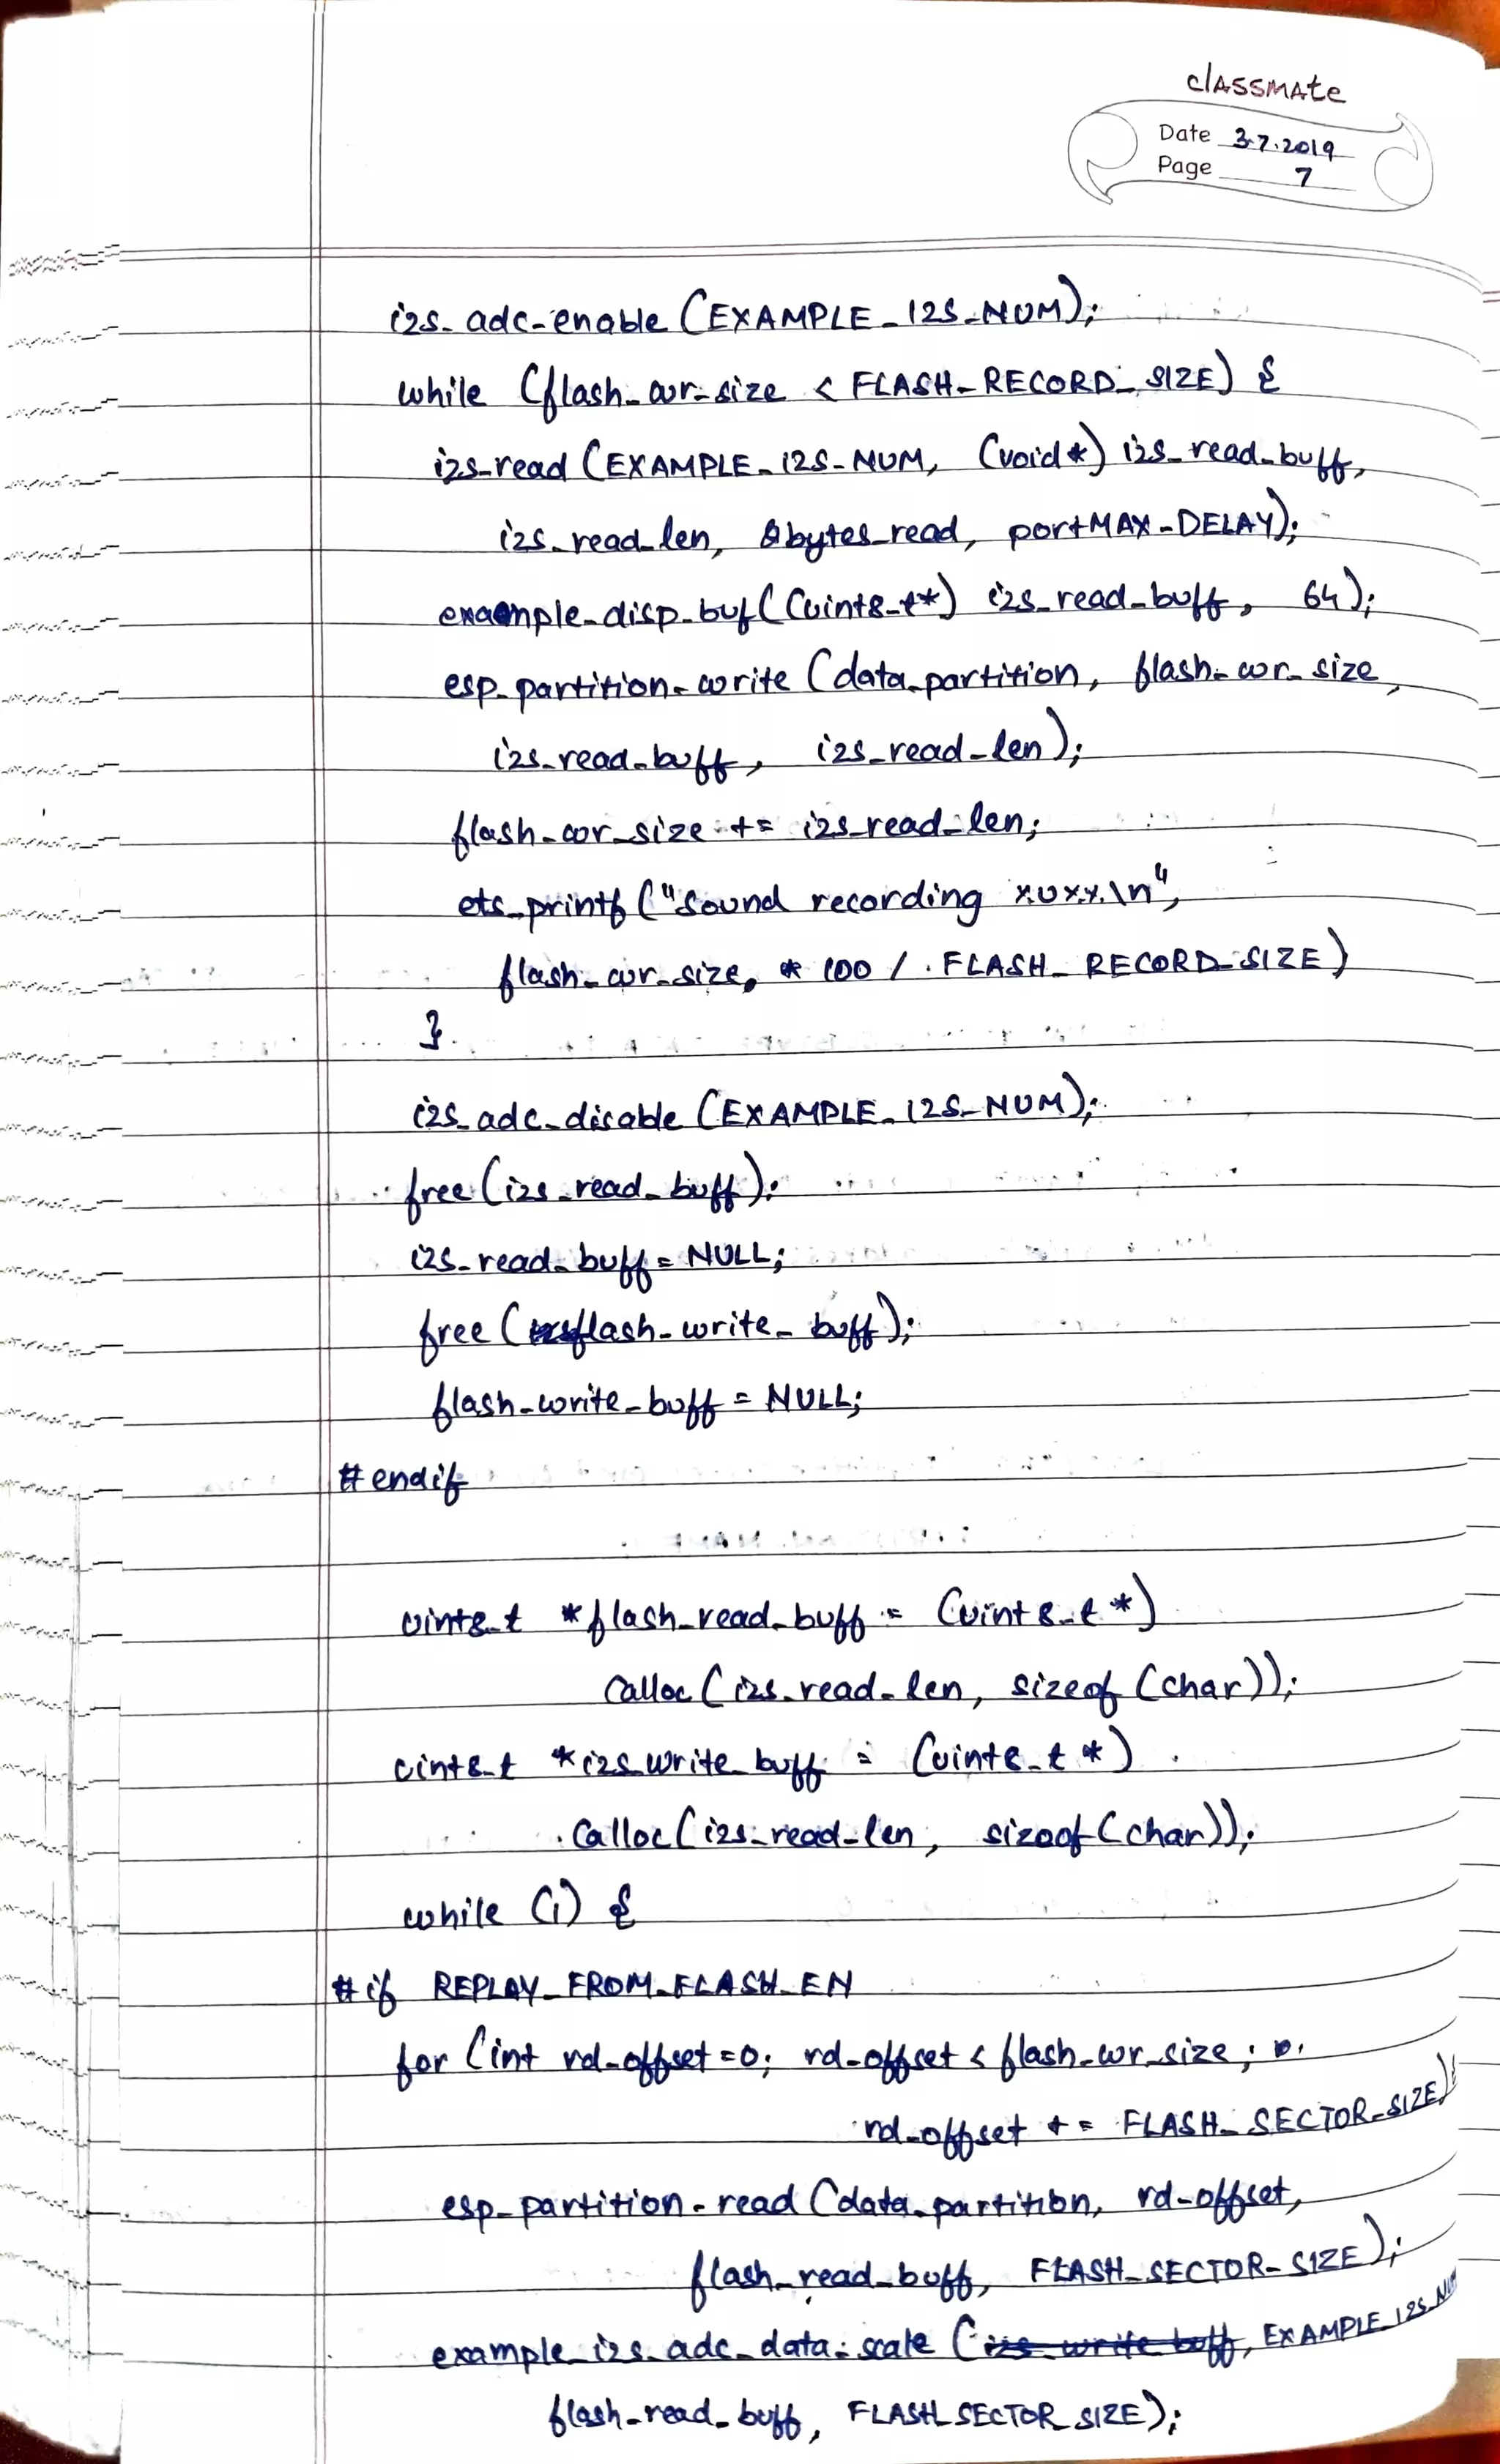 classmate
Date 3.7.2019
Page 7
i2s_adc_enable (EXAMPLE_I2S_NUM);
while (flash_wr_size < FLASH_RECORD_SIZE) {
i2s_read (EXAMPLE_I2S_NUM, (void*) i2s_read_buff,
i2s_read_len, &bytes_read, portMAX_DELAY);
example_disp_buf((uint8_t*) i2s_read_buff, 64);
esp_partition_write (data_partition, flash_wr_size,
i2s_read_buff, i2s_read_len);
flash_wr_size += i2s_read_len;
ets_printf ("Sound recording %u%%\n",
flash_wr_size, * 100 / FLASH_RECORD_SIZE)
}
i2s_adc_disable (EXAMPLE_I2S_NUM);
free (i2s_read_buff);
i2s_read_buff = NULL;
free (flash_write_buff);
flash_write_buff = NULL;
#endif
uint8_t *flash_read_buff = (uint8_t *)
calloc (i2s_read_len, sizeof (char));
uint8_t *i2s_write_buff = (uint8_t *)
calloc (i2s_read_len, sizeof (char));
while (1) {
#if REPLAY_FROM_FLASH_EN
for (int rd_offset =0; rd_offset < flash_wr_size;
rd_offset += FLASH_SECTOR_SIZE)
esp_partition_read (data_partition, rd_offset,
flash_read_buff, FLASH_SECTOR_SIZE);
example_i2s_adc_data_scale (i2s_write_buff, EXAMPLE_I2S_NUM
flash_read_buff, FLASH_SECTOR_SIZE);